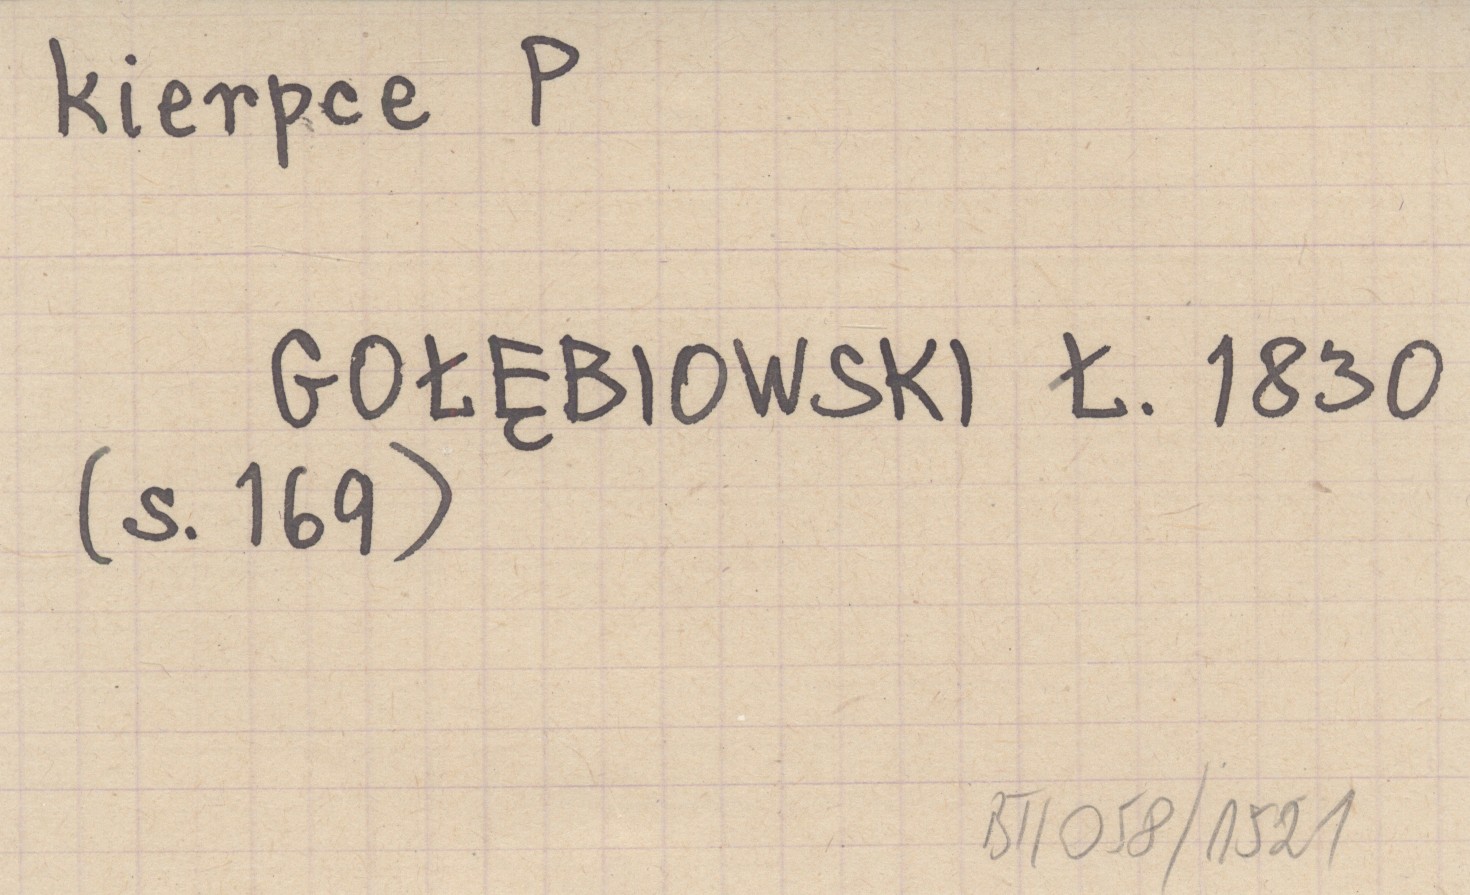 kierpce P
GOŁĘBIOWSKI Ł. 1830
(s. 169)
BTI 058/1521